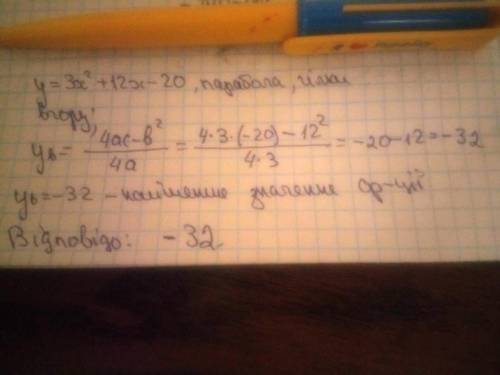 y=3x²+12x-20, парабола, гілки
вгору;
yв= (4ac-b²)/(4a) = (4·3·(-20)-12²)/(4·3) = -20-12=-32
yв=-32 - найменше значення ф-ції
Відповідь: -32.